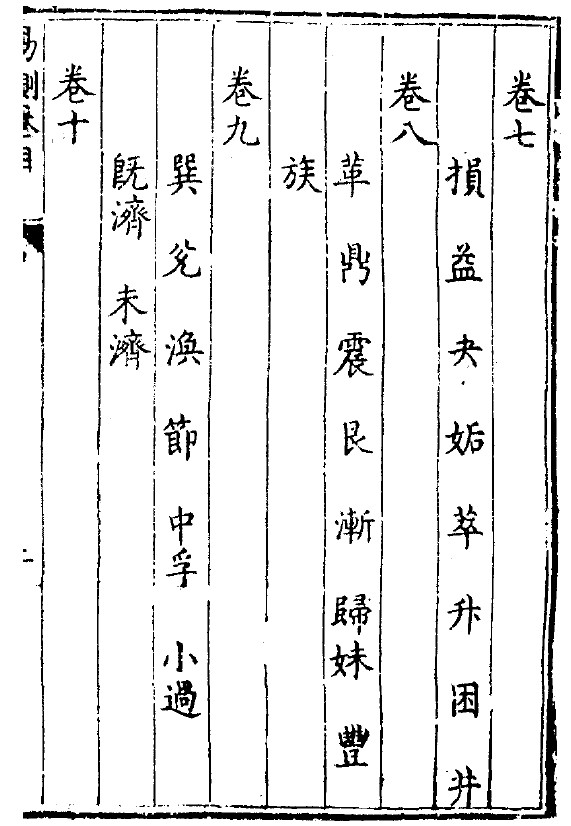 卷七
損 益 夬 姤 萃 升 困 井
卷八
革 鼎 震 艮 漸 歸妹 豐
旅
卷九
巽 兌 渙 節 中孚 小過
旣濟 未濟
卷十